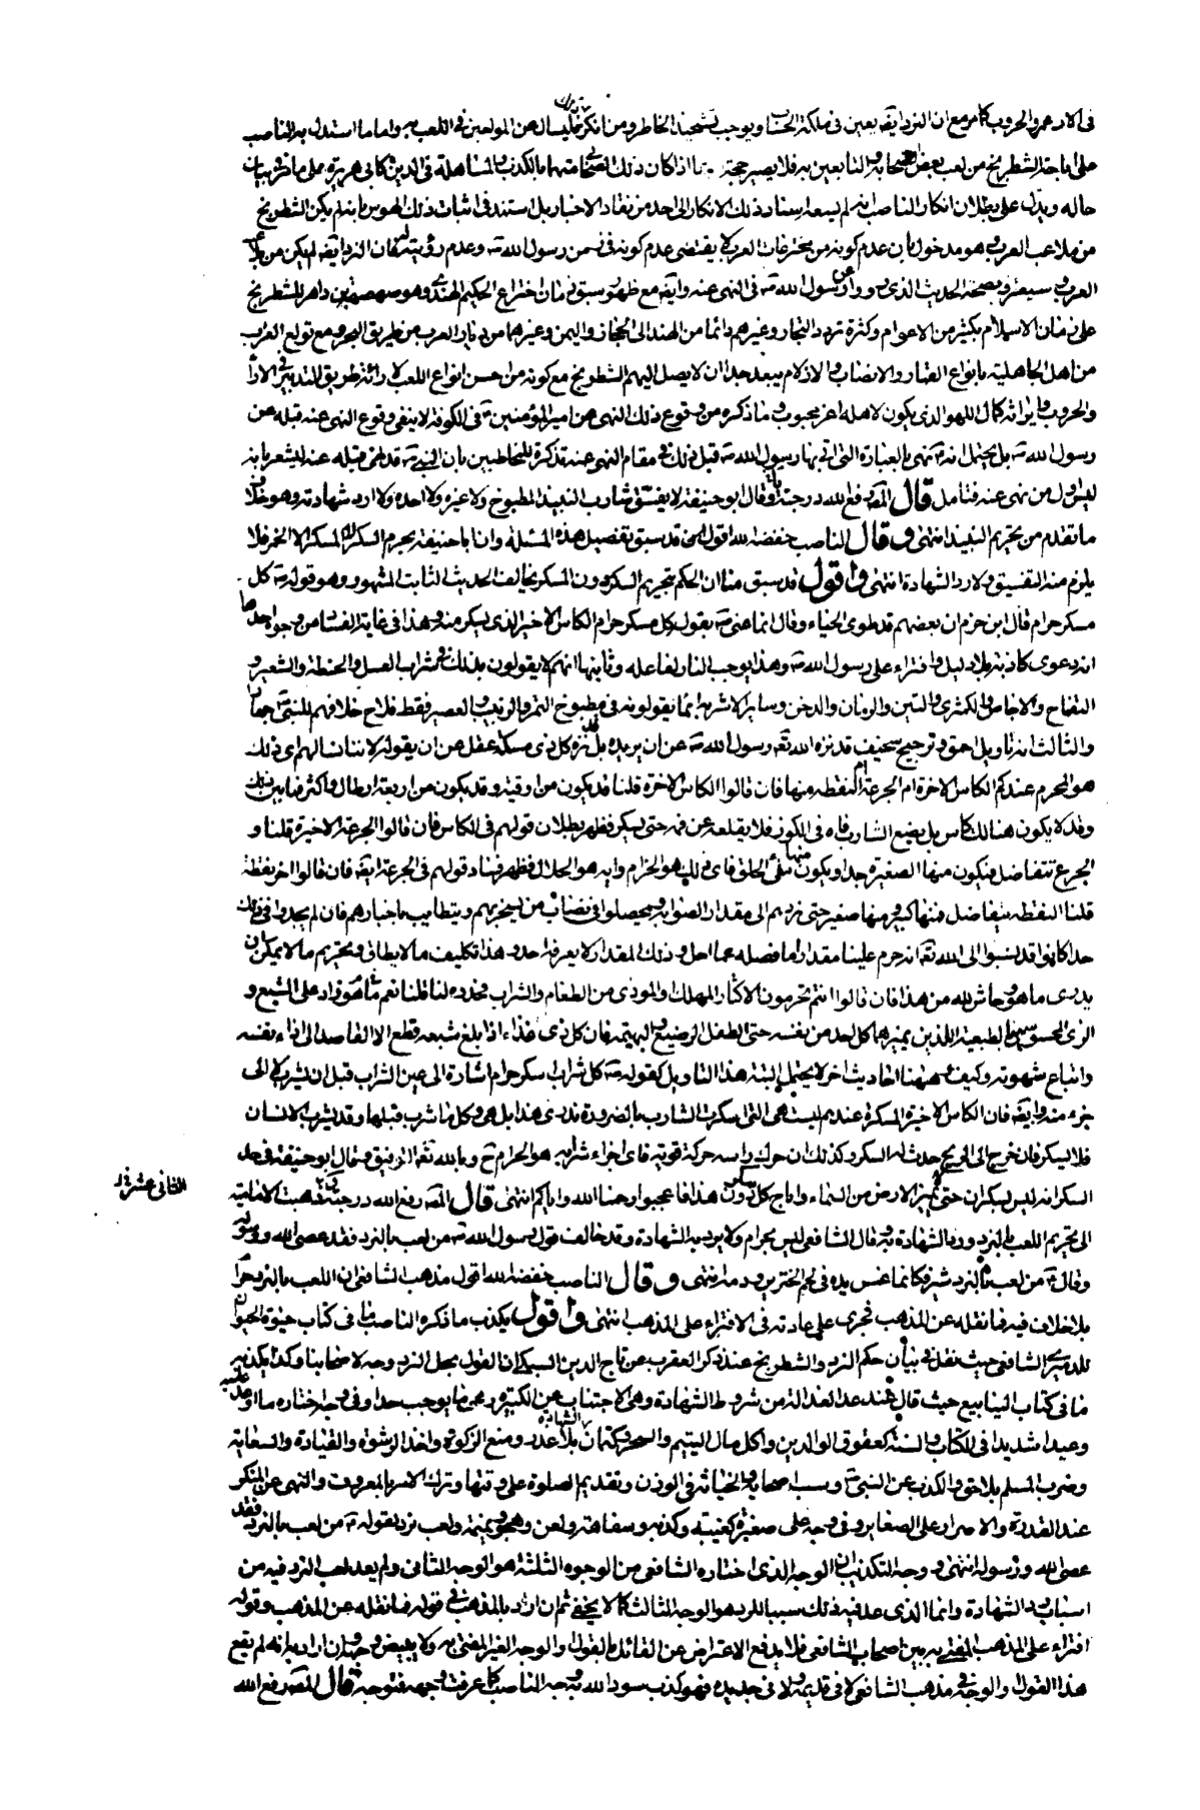 في الاد عمر والحروب كما مر مع ان النرد ايضا يعين في ملكة الحساب ويوجب تشحيذ الخاطر ومن انكر فليسال من المولعين في اللعب به واما ما استدل به الناصب
على اباحة الشطرنج من لعب بعض الصحابة والتابعين به فلا يصير حجة اذا كان ذلك الصحابي متهما بالكذب والمساهلة في الدين كابي هريرة على ما مر بيان
حاله ويدل على بطلان انكار الناصب انه لم يسعه اسناد ذلك الانكار الى احد من نقاد الاخبار بل استند في اثبات ذلك الهوس بانه لم يكن الشطرنج
من ملاعب العرب وهو مدخول بان عدم كونه من مخترعات العرب لا يقتضي عدم كونه في زمن رسول الله ص وعدم رؤيته له فان النرد ايضا لم يكن من ملاعب
العرب و سيعترف بصحة الحديث الذي ورد عن رسول الله ص في النهي عنه وايضا مع ظهور سبق زمان اختراع الحكيم الهندي وهو صصه بن داهر للشطرنج
على زمان الاسلام بكثير من الاعوام وكثرة تردد التجار وغيرهم دائما من الهند الى الحجاز واليمن وغيرهما من ديار العرب من طريق البحر و مع تولع العرب
من اهل الجاهلية بانواع القمار والانصاب والازلام يبعد جدا ان لا يصل اليهم الشطرنج مع كونه من احسن انواع اللعب لاراءته طريق التدبير في الاراء
والحروب وايراثه كمال اللهو الذي يكون لاهله اعز محبوب وما ذكره من وقوع ذلك النهي من امير المؤمنين ع في الكوفة لا ينفي وقوع النهي عنه قبله عن
رسول الله ص بل يحتمل انه ع نهى بالعبارة التي اتى بها رسول الله ص قبل ذلك في مقام النهي عنه تذكرة للمخاطبين بان النبي ص قد نهى قبله عنه ليشعر بانه
ليس اول من نهى عنه فتامل قال المص رفع الله درجته وقال ابو حنيفة لا يفسق شارب النبيذ المطبوخ ولا غيره ولا احده ولا ارد شهادته وهو خلاف
ما تقدم من تحريم النبيذ انتهى وقال الناصب خفضه الله اقول قد سبق تفصيل هذه المسئلة وان ابا حنيفة يحرم السكر لا المسكر الا الخمر فلا
يلزم منه التفسيق ولا رد الشهادة انتهى واقول قد سبق منا ان الحكم بتحريم السكر دون المسكر يخالف الحديث الثابت المشهور وهو قوله ص كل
مسكر حرام قال ابن حزم ان بعضهم قد طوى الحياء وقال انما عنى ص بقوله كل مسكر حرام الكاس الاخير الذي يسكر منه وهذا في غاية الفساد من وجوه احدها
انه دعوى كاذبة بلا دليل وافتراء على رسول الله ص وهذا يوجب النار لفاعله وثانيها انهم لا يقولون بذلك في شراب العسل والحنطة والشعير و
التفاح والاجاص والكمثرى والتين والرمان والدخن وسائر الاشربة انما يقولونه في مطبوخ التمر والزبيب والعصير فقط فلاح خلافهم للنبي ص جهارا
والثالث انه تاويل احمق وترجيح سخيف قد نزه الله تعالى رسول الله ص عن ان يريده بل نزه كل ذي مسكة عقل عن ان يقوله لاننا نسالهم اي ذلك
هو المحرم عندكم الكاس الاخرة ام الجرعة ام النقطة منها فان قالوا الكاس الاخرة قلنا قد يكون من اوقية وقد يكون من اربعة ارطال واكثر فما بين ذلك
وقد لا يكون هنالك كاس بل يضع الشارب فاه في الكوز فلا يقلعه عن فمه حتى يسكر فظهر بطلان قولهم في الكاس فان قالوا الجرعة الاخيرة قلنا و
الجرع تتفاضل فيكون منها الصغيرة جدا ويكون منها ملئ الحلق فاي ذلك هو الحرام وايه هو الحلال فظهر فساد قولهم في الجرعة ايضا فان قالوا اخر نقطة
قلنا النقط يتفاضل فمنها كبير ومنها صغير حتى نردهم الى مقدار الصوابة ويحصلوا في نصاب من يسخر بهم ويتطايب باخبارهم فان لم يحدوا في ذلك
حدا كانوا قد نسبوا الى الله تعالى انه حرم علينا مقدارا ما فصله مما احل وذلك المقدار لا يعرفه احد وهذا تكليف ما لا يطاق وتحريم ما لا يمكن ان
يدرى ما هو وحاش لله من هذا فان قالوا انتم تحرمون الاكثار المهلك والموذي من الطعام والشراب فحددوه لنا قلنا نعم ما هو زاد على الشبع و
الري المحسوسين بالطبيعة اللذين يميزهما كل احد من نفسه حتى الطفل الرضيع والبهيمة فان كل ذي غذاء اذا بلغ شبعه قطع الا القاصد الى اذاء نفسه
واتباع شهوته وكيف وههنا احاديث اخر لا يحتمل البتة هذا التاويل كقوله ص كل شراب اسكر حرام اشارة الى عين الشراب قبل ان يشرب لا الى
جزء منه وايضا فان الكاس الاخيرة المسكرة عندهم ليست هي التي اسكرت الشارب بالضرورة ندري هذا بل هي وكل ما شرب قبلها وقد يشرب الانسان
فلا يسكر فان خرج الى الريح حدث له السكر وكذلك ان حرك راسه حركة قوية فاي اجزاء شرابه هو الحرام ح وبالله تعالى التوفيق وقال ابو حنيفة في حد
السكر انه ليس بسكران حتى لا يميز الارض من السماء واباح كل سكر دون هذا فاعجبوا رحمنا الله واياكم انتهى قال المص رفع الله درجته يب ذهبت الامامية
الى تحريم اللعب بالنرد ورد الشهادة به وقال الشافعي ليس بحرام ولا يرد به الشهادة وقد خالف قول رسول الله ص من لعب بالنرد فقد عصى الله ورسوله
وقال ع من لعب بالنردشير فكانما غمس يده في لحم الخنزير ودمه انتهى وقال الناصب خفضه الله اقول مذهب الشافعي ان اللعب بالنرد حرام
بلا خلاف فيه فما نقله عن المذهب فجرى على عادته في الافتراء على المذهب انتهى واقول يكذب ما ذكره الناصب ما في كتاب حيوة الحيوان
للدميري الشافعي حيث نقل في بيان حكم النرد والشطرنج عند ذكر العقرب عن تاج الدين السبكي ان القول بحل النرد وجه لاصحابنا وكذا يكذبه
ما في كتاب الينابيع حيث قال عند عد العدالة من شروط الشهادة وهي الاجتناب عن الكبيرة وهي ما يوجب حدا وفي وجه اختاره ما اوعد عليه
وعيدا شديدا في الكتاب والسنة كعقوق الوالدين واكل مال اليتيم والسحر وكتمان الشهادة بلا عذر ومنع الزكوة واخذ الرشوة والقيادة والسعاية
وضرب المسلم بلا حق والكذب عن النبي ص وسب اصحابه والخيانة في الوزن وتقديم الصلوة على وقتها وترك الامر بالمعروف والنهي عن المنكر
عند القدرة والاصرار على الصغاير و في وجه على صغيرة كغيبة وكذب وسفاهة ولعن وهجو ونميمة ولعب نرد بقوله ص من لعب بالنرد فقد
عصى الله ورسوله انتهى و وجه التكذيب ان الوجه الذي اختاره الشافعي من الوجوه الثلثة هو الوجه الثاني ولم يعد لعب النرد فيه من
اسباب رد الشهادة وانما الذي عد فيه ذلك سببا للرد هو الوجه الثالث كما لا يخفى ثم ان اراد بالمذهب في قوله فما نقله عن المذهب وقوله
افتراء على المذهب المفتى به بين اصحاب الشافعي فلا يدفع الاعتراض عن القائل بالقول والوجه الغير المفتى به ولا يبيض وجهه وان اراد به انه لم يقع
هذا القول والوجه في مذهب الشافعي لا في قديمه ولا في جديده فهو كذب سود الله به وجه الناصب كما عرفت وجهه فتوجه قال المص رفع الله
الثاني عشر في